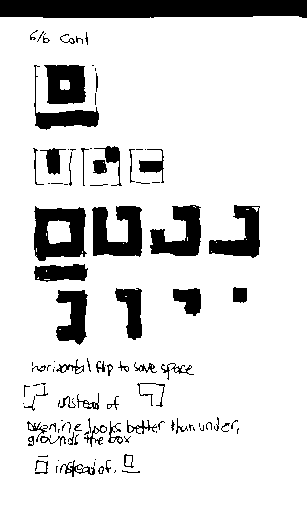 6/6 Cont
horizontal flip to save space
instead of
looks better than under,
grounds the box
instead of